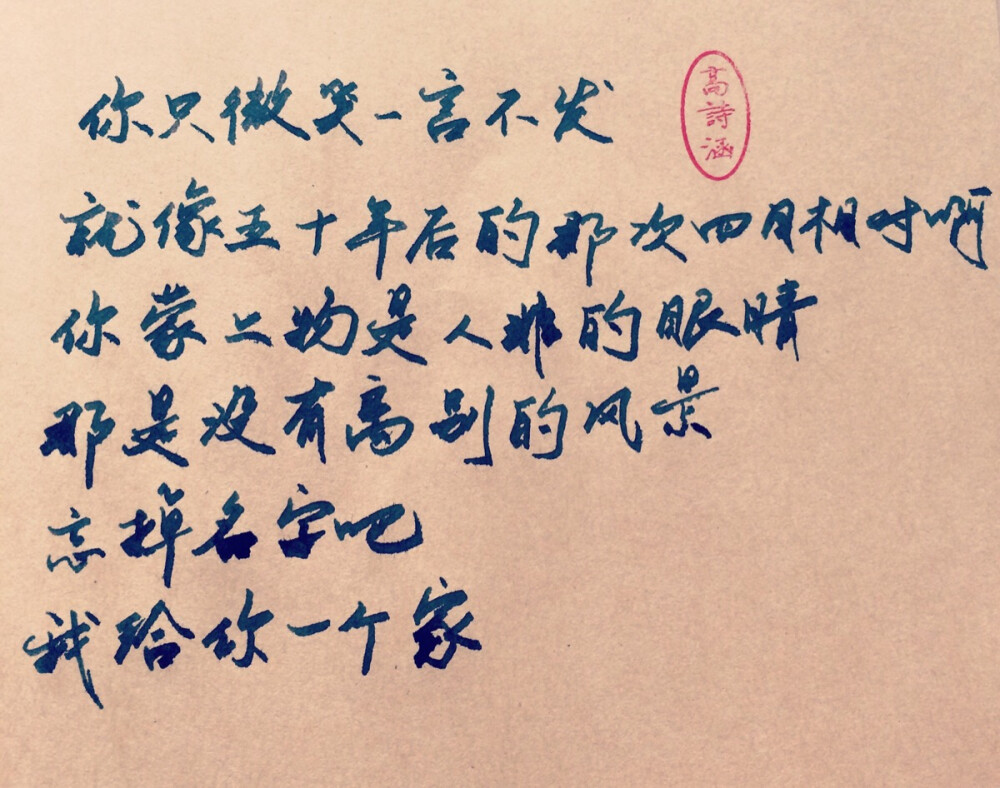 你只微笑一言不发
高詩涵
就像五十年后的那次四月相对啊
你蒙上物是人非的眼睛
那是没有离别的风景
忘掉名字吧
我给你一个家